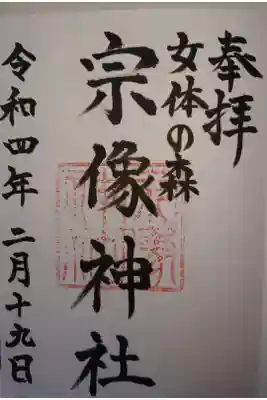 奉拝
女体の森
宗像神社
令和四年 二月十九日